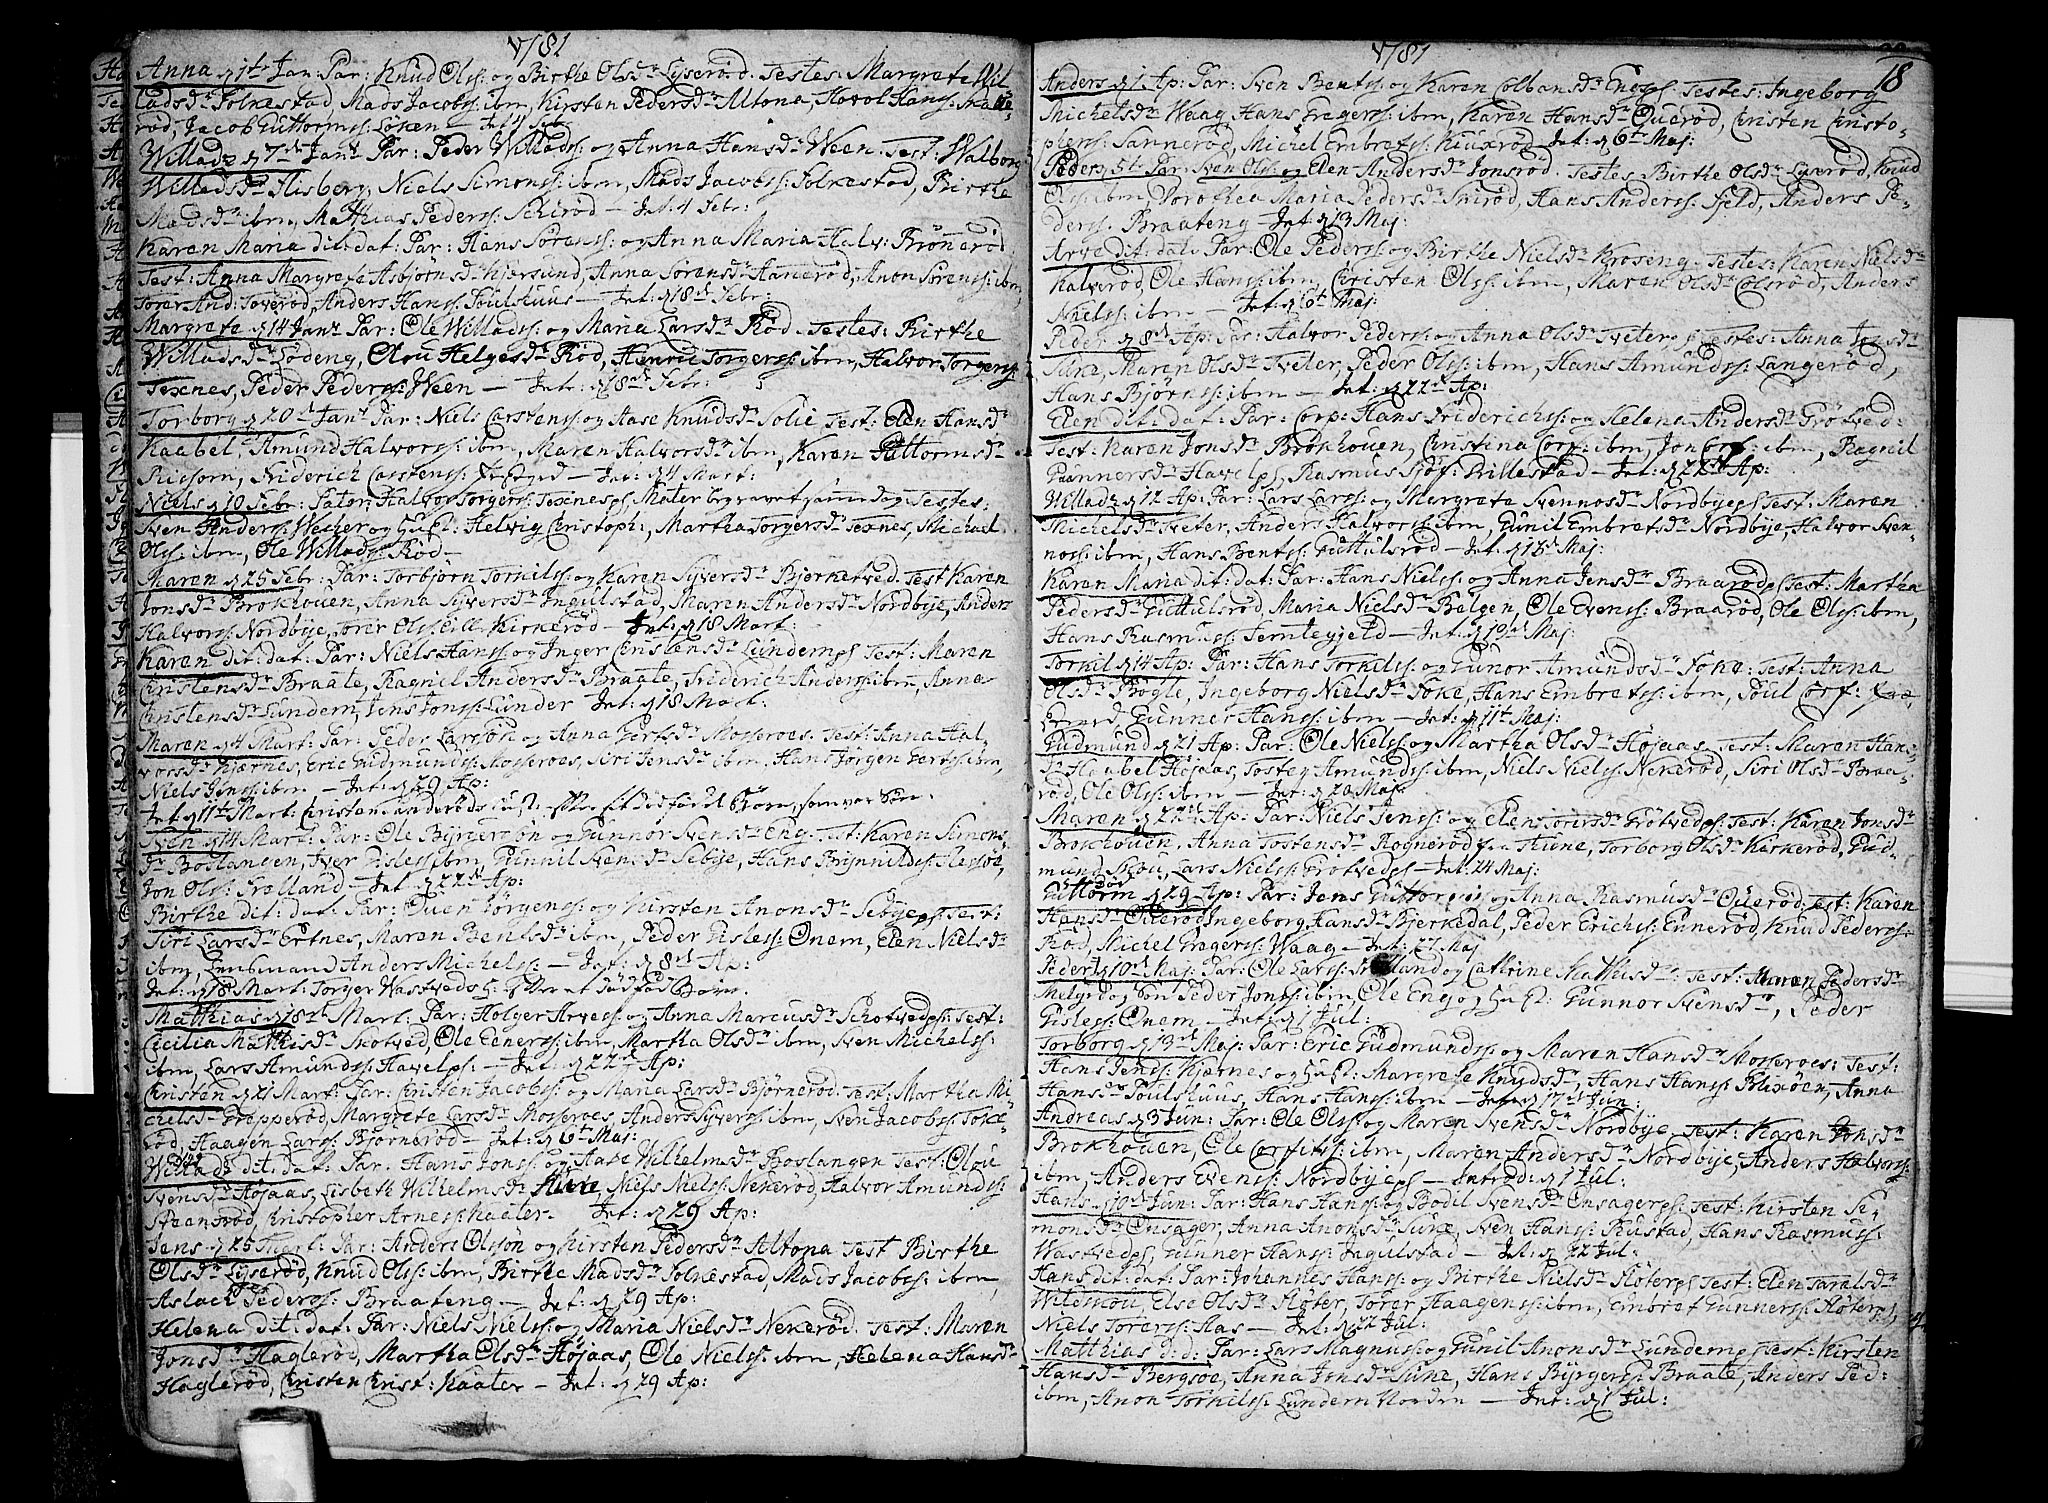 1781
Anna d 1t Jan: Par: Knud Olss: og Birthe Olsdr Lyserød. Testes: Margrete Wil-
ladsdr Folkestad, Mads Jacobss: ibm, Kirsten Pedersdr Altona, Havol Hanss: Skaa-
rød, Jacob Guttormss: Løken — Int: 4 Febr:
Willadz d 7de Janr Par: Peder Willadss: og Anna Hansdr Ween. Test: Walborg
Willadsdr Flisberg, Niels Simonss: ibm, Mads Jacobss: Folkestad, Birthe
Madsdr ibm, Mathias Pederss: Schirød — Int: 4 Febr:
Karen Maria dit: dat: Par: Hans Sørenss: og Anna Maria Halv: Brønnerød
Test: Anna Margrete Asbjørnsdr Kjersund, Anna Sørensdr Aanerød, Anon Sørenss: ibm,
Torer And: Toverød, Anders Hanss: Poulshuus — Int: d 18de Febr:
Margrete d 14 Janr Par: Ole Willadss: og Maria Larsdr Rød. Testes: Birthe
Willadsdr Lødeng, Olou Helgesdr Rød, Henric Torgerss: ibm, Halvor Torgerss:
Texnes, Peder Pederss: Ween — Int: d 18de Febr:
Torborg d 20de Janr Par: Niels Carstenss: og Aase Knudsdr Solie Test: Elen Hansdr
Kaabel, Amund Halvorss: ibm, Maren Halvorsdr ibm, Karen Guttormsdr
Riisom, Friderich Carstenss: — Int: d 4 Mart:
Niels d 10 Febr: Pater: Halvor Torgerss: Texnes, Mater begravet samme dag Testes:
Sven Anderss: Wecher og Hust: Helvig Cristoph:, Martha Torgersdr Texnes, Michael
Olss: ibm, Ole Willadss: Rød —
Maren d 25 Febr: Par: Torbjørn Torkilss: og Karen Syversdr Bjerketved. Test Karen
Jonsdr Brokhouen, Anna Syversdr Ingulstad, Maren Andersdr Nordbye, Anders
Halvorss: Nordbye, Torer Olss: Lill-Kirkerød — Int: d 18 Mart:
Karen dit: dat: Par: Niels Hanss: og Inger Cristensdr Lundem Test: Maren
Cristensdr Braate, Ragnil Andersdr Braate, Friderich Anderss: ibm, Anne
Cristensdr Lundem, Jens Jonss: Lunder Int: d 18 Mart:
Maren d 4 Mart: Par: Peder Larssøn og Anna Gertsdr Mosseroes. Test: Anna Hal-
vorsdr Kjærnes, Eric Gudmundss: Mosseroes, Siri Jensdr ibm, Hans Jørgen Gertss: ibm,
Niels Jenss: ibm — Int: d 29 Ap:
Int: d 11te Mart: Cristen Sanderøds Hust: efter et dødfødt Børn, som var Søn.
Sven d 14 Mart: Par: Ole Byrgerssøn og Gunnor Svensdr Eng. Test: Karen Simons-
dr Boslangen, Iver Gisless: ibm, Gunnil Svensdr Sebye, Hans Brynnildss: Stensoe,
Jon Olss: Frølland — Int: d 22de Ap:
Birthe dit: dat: Par: Ouen Jørgenss: og Kirsten Anonsdr Sebye. Test:
Siri Larsdr Ertnes, Maren Bentsdr ibm, Peder Gisless: Onem, Elen Nielsdr
ibm, Lensmand Anders Michelss: — Int: d 8de Ap:
Int: d 18 Mart: Torger Wastveds H: efter et dødfød Børn.
Matthias d 18t Mart. Par: Holger Arvess: og Anna Marcusdr Schotved. Test:
Cicilia Mathisdr Skotved, Ole Eenerss: ibm, Martha Olsdr ibm, Sven Michelss:
ibm, Lars Amundss: Havel — Int: d 22de Ap:
Cristen d 21 Mart: Par: Cristen Jacobss: og Maria Larsdr Bjørnerød. Test: Martha Mi-
chelsdr Grepperød, Margrete Larsdr Mosseroes, Anders Syverss: ibm, Sven Jacobss: Toke-
rød, Haagen Larss: Bjørnerød — Int: d 6te Maj:
Willads dit: dat: Par: Hans Jonss: og Aase Wilhelmsdr Boslangen Test: Olou
Svensdr Højaas, Lisbeth Wilhelmsdr, Niels Nielss: Nekerød, Halvor Amundss:
Spaansrød, Cristopher Arness: Kaaler. Int: d 29 Ap:
Jens d 25 Mart: Par: Anders Olssøn og Kirsten Pedersdr Altona Test Birthe
Olsdr Lyserød, Knud Olss: ibm, Birthe Madsdr Folkestad, Mads Jacobss: ibm,
Aslach Pederss: Braateng — Int: d 29 Ap:
Helena dit: dat: Par: Niels Nielss: og Maria Nielsdr Nekerød. Test: Maren
Jonsdr Haglerød, Martha Olsdr Højaas, Ole Nielss: ibm, Helena Hansdr
Haglerød, Cristen Crist: Kaater — Int: d 29 Ap:
1781
18
Anders d 1 Ap: Par: Sven Bentss: og Karen Colbansdr Eng Testes: Ingeborg
Michelsdr Waag Hans Gregerss: ibm, Karen Hansdr Ouerød, Cristen Cristo-
pherss: Sannerød, Michel Embretss: Kiuxrød Int: d 6te Maj:
Peder d 5t Par: Sven Olss: og Elen Andersdr Jonsrød. Testes Birthe Olsdr Lyserød, Knud
Olss: ibm, Dorothea Maria Pedersdr Skirød, Hans Anderss: Fjeld, Anders Pe-
derss: Braateng — Int: d 13 Maj:
Arve dit: dat: Par: Ole Pederss: og Birthe Nielsdr Kroseng. Testes: Karen Nielsdr
Kalverød, Ole Hanss: ibm, Christen Olss: ibm, Maren Olsdr Colsrød, Anders
Nielss: ibm — Int: d 6te Maj:
Peder d 8de Ap: Par: Halvor Pederss: og Anna Olsdr Tveter Testes: Anna Jensdr
Sune, Maren Olsdr Tveter, Peder Olss: ibm, Hans Amundss: Langerød,
Hans Bjørnss: ibm — Int: d 22de Ap:
Elen dit: dat: Par: Corp: Hans Friderichss: og Helena Andersdr Grøtved:
Test: Karen Jonsdr Brokhouen, Cristina Corf: ibm, Jon Corf: ibm, Ragnil
Gunnersdr Havel, Rasmus Siof: Grillestad — Int: d 22de Ap:
Willadz d 12 Ap: Par: Lars Larss: og Margrete Svennosdr Nordbye Test: Maren
Michelsdr Tveter, Anders Halvorss: ibm, Gunil Embretsdr Nordbye, Halvor Sven-
noss: ibm, Hans Bentss: Guttulsrød — Int: d 13de Maj:
Karen Maria dit: dat: Par: Hans Nielss: og Anna Jensdr Braarød Test: Martha
Pedersdr Guttulsrød, Maria Nielsdr Bølgen, Ole Evenss: Braarød, Ole Olss: ibm,
Hans Rasmuss: Femteyjeld — Int: d 10de Maj:
Torkil d 14 Ap: Par: Hans Torkilss: og Gunor Amundsdr Foke. Test: Anna
Olsdr Bogle, Ingeborg Nielsdr Foke, Hans Embretss: ibm, Poul Corf:
Gunner Hanss: ibm — Int: d 11te Maj:
Gudmund d 21 Ap: Par: Ole Nielss: og Martha Olsdr Højaas, Test: Maren Hans-
dr Haabel Højaas, Tosten Amundss: ibm, Niels Nielss: Nekerød, Siri Olsdr Braa-
rød, Ole Olss: ibm — Int: d 20 Maj:
Maren d 22de Ap: Par: Niels Jenss: og Elen Torersdr Grøtved. Test: Karen Jonsdr
Brokhouen, Anna Tostensdr Rognerød, Torborg Olsdr Kirkerød, Gud-
mund Skou, Lars Nielss: Grøtved — Int: 24 Maj:
Guttorm d 29 Ap: Par: Jens Guttormss: og Anna Rasmusdr Ouerød, Test: Karen
Hansdr Ouerød, Ingeborg Hansdr Bjerkedal, Peder Erichss: Gunerød, Knud Pederss:
Rød, Michel Gregerss: Waag — Int: 27 Maj
Peder d 10de Maj: Par: Ole Larss: Frølland og Cathrine Mathisdr: Test: Maren Pedersdr
Peder Jonss: ibm, Ole Eng og Hust: Gunnor Svensdr, Peder
Gisless: Onem — Int: d 1 Jul:
Torborg d 13de Maj: Par: Eric Gudmundss: og Maren Hansdr Mosseroes: Test:
Hans Jenss: Kjærnes og Hust: Margrete Knudsdr, Hans Hanss: Blixøen, Anna
Hansdr Poulshuus, Hans Hanss: ibm — Int: d 17de Jun:
Andreas d 3 Jun: Par: Ole Olss: og Maren Svensdr Nordbye Test: Karen Jonsdr
Brokhouen, Ole Corfitss: ibm, Maren Andersdr Nordbye, Anders Halvorss:
ibm, Anders Evenss: Nordbye — Introd: d 1 Jul:
Hans d 10de Jun: Par: Hans Hanss: og Bodil Svensdr Ensager Test: Kirsten Si-
monsdr Ensager, Anna Anonsdr Sune, Sven Hanss: Rustad, Hans Rasmuss:
Wastved, Gunner Hanss: Ingulstad — Int: d 22 Jul:
Hans dit: dat: Par: Johannes Hanss: og Birthe Nielsdr Fløter Test: Elen Taralsdr
Wildskou, Else Olsdr Fløter, Torer Haagenss: ibm, Embret Gunnerss: Fløter,
Niels Torerss: Aas — Int: d 22 Jul:
Matthias d: d: Par: Lars Magnuss: og Gunil Anonsdr Lundem Test: Kirsten
Hansdr Bergsøe, Anna Jonsdr Sune, Hans Byrgerss: Braate, Anders Ped:
ibm, Anon Torkilss: Lundem Norden — Int: d 1 Jul: